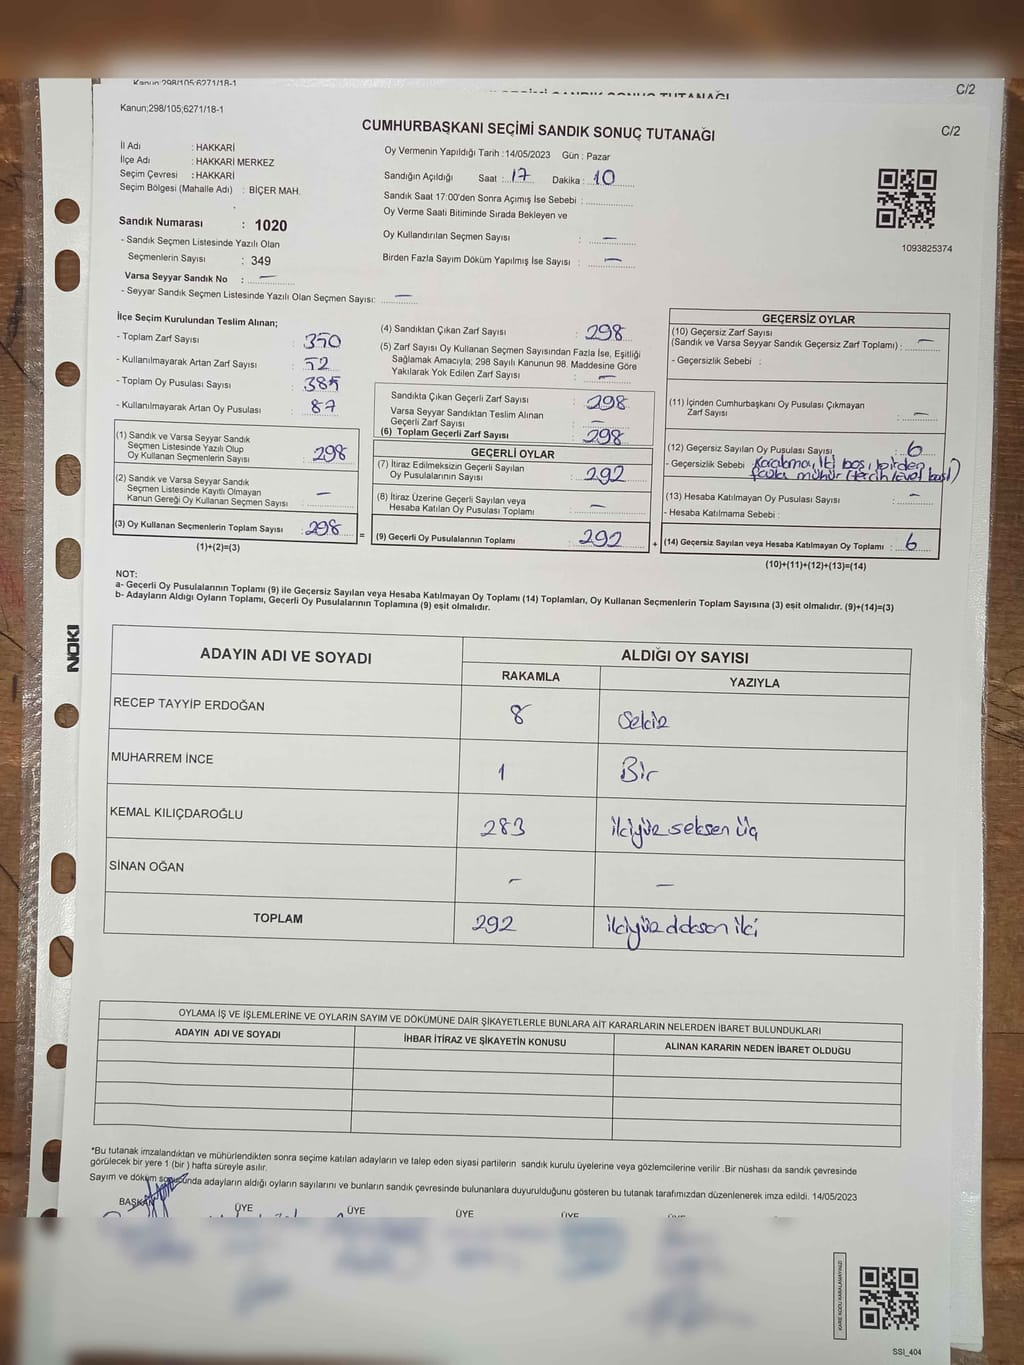 Kanun;298/105;6271/18-1
C/2
Kanun;298/105;6271/18-1
C/2
CUMHURBAŞKANI SEÇİMİ SANDIK SONUÇ TUTANAĞI
İl Adı : HAKKARİ
İlçe Adı : HAKKARİ MERKEZ
Seçim Çevresi : HAKKARİ
Seçim Bölgesi (Mahalle Adı) : BİÇER MAH.
Oy Vermenin Yapıldığı Tarih :14/05/2023 Gün : Pazar
Sandığın Açıldığı Saat : 17 Dakika : 10
Sandık Saat 17:00'den Sonra Açımış İse Sebebi :
Oy Verme Saati Bitiminde Sırada Bekleyen ve
Oy Kullandırılan Seçmen Sayısı : —
Birden Fazla Sayım Döküm Yapılmış İse Sayısı : —
1093825374
Sandık Numarası : 1020
- Sandık Seçmen Listesinde Yazılı Olan
Seçmenlerin Sayısı : 349
Varsa Seyyar Sandık No : —
- Seyyar Sandık Seçmen Listesinde Yazılı Olan Seçmen Sayısı: —
İlçe Seçim Kurulundan Teslim Alınan;
- Toplam Zarf Sayısı : 350
- Kullanılmayarak Artan Zarf Sayısı : 52
- Toplam Oy Pusulası Sayısı : 385
- Kullanılmayarak Artan Oy Pusulası : 87
(1) Sandık ve Varsa Seyyar Sandık
Seçmen Listesinde Yazılı Olup
Oy Kullanan Seçmenlerin Sayısı : 298
(2) Sandık ve Varsa Seyyar Sandık
Seçmen Listesinde Kayıtlı Olmayan
Kanun Gereği Oy Kullanan Seçmen Sayısı : —
(3) Oy Kullanan Seçmenlerin Toplam Sayısı : 298
(1)+(2)=(3)
(4) Sandıktan Çıkan Zarf Sayısı : 298
(5) Zarf Sayısı Oy Kullanan Seçmen Sayısından Fazla İse, Eşitliği
Sağlamak Amacıyla; 298 Sayılı Kanunun 98. Maddesine Göre
Yakılarak Yok Edilen Zarf Sayısı : —
Sandıkta Çıkan Geçerli Zarf Sayısı : 298
Varsa Seyyar Sandıktan Teslim Alınan
Geçerli Zarf Sayısı : —
(6) Toplam Geçerli Zarf Sayısı : 298
GEÇERLİ OYLAR
(7) İtiraz Edilmeksizin Geçerli Sayılan
Oy Pusulalarının Sayısı : 292
(8) İtiraz Üzerine Geçerli Sayılan veya
Hesaba Katılan Oy Pusulası Toplamı : —
= (9) Geçerli Oy Pusulalarının Toplamı : 292
GEÇERSİZ OYLAR
(10) Geçersiz Zarf Sayısı
(Sandık ve Varsa Seyyar Sandık Geçersiz Zarf Toplamı) : —
- Geçersizlik Sebebi :
(11) İçinden Cumhurbaşkanı Oy Pusulası Çıkmayan
Zarf Sayısı : —
(12) Geçersiz Sayılan Oy Pusulası Sayısı : 6
- Geçersizlik Sebebi : Karalama, iki boş, birden
fazla mühür (tercih/evet bas.)
(13) Hesaba Katılmayan Oy Pusulası Sayısı : —
- Hesaba Katılmama Sebebi :
+ (14) Geçersiz Sayılan veya Hesaba Katılmayan Oy Toplamı : 6
(10)+(11)+(12)+(13)=(14)
NOT:
a- Geçerli Oy Pusulalarının Toplamı (9) ile Geçersiz Sayılan veya Hesaba Katılmayan Oy Toplamı (14) Toplamları, Oy Kullanan Seçmenlerin Toplam Sayısına (3) eşit olmalıdır. (9)+(14)=(3)
b- Adayların Aldığı Oyların Toplamı, Geçerli Oy Pusulalarının Toplamına (9) eşit olmalıdır.
NOKI
ADAYIN ADI VE SOYADI
ALDIĞI OY SAYISI
RAKAMLA YAZIYLA
RECEP TAYYİP ERDOĞAN 8 Sekiz
MUHARREM İNCE 1 Bir
KEMAL KILIÇDAROĞLU 283 ikiyüz seksen üç
SİNAN OĞAN — —
TOPLAM 292 ikiyüz doksan iki
OYLAMA İŞ VE İŞLEMLERİNE VE OYLARIN SAYIM VE DÖKÜMÜNE DAİR ŞİKAYETLERLE BUNLARA AİT KARARLARIN NELERDEN İBARET BULUNDUKLARI
ADAYIN ADI VE SOYADI İHBAR İTİRAZ VE ŞİKAYETİN KONUSU ALINAN KARARIN NEDEN İBARET OLDUĞU
*Bu tutanak imzalandıktan ve mühürlendikten sonra seçime katılan adayların ve talep eden siyasi partilerin sandık kurulu üyelerine veya gözlemcilerine verilir .Bir nüshası da sandık çevresinde
görülecek bir yere 1 (bir ) hafta süreyle asılır.
Sayım ve döküm sonucunda adayların aldığı oyların sayılarını ve bunların sandık çevresinde bulunanlara duyurulduğunu gösteren bu tutanak tarafımızdan düzenlenerek imza edildi. 14/05/2023
BAŞKAN ÜYE ÜYE ÜYE ÜYE ÜYE
KARE KODU KARALAMAYINIZ!
SSI_404